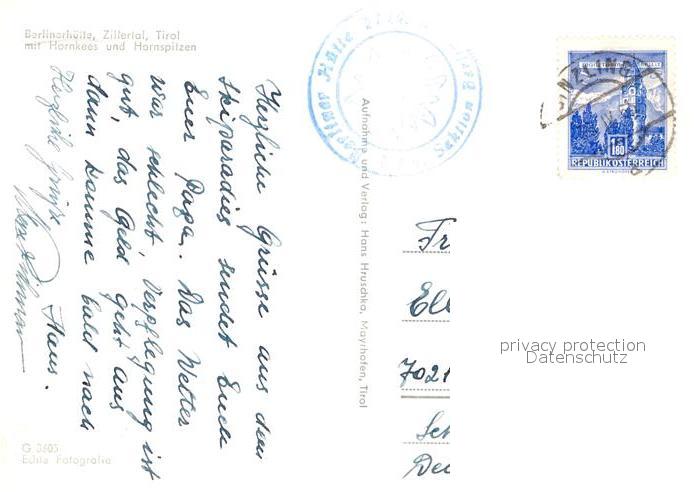 Berlinerhütte, Zillertal, Tirol
mit Hornkees und Hornspitzen
Herzliche Grüsse aus dem
Skiparadies sendet Euch
Euer Papa. Das Wetter
war schlecht, Verpflegung ist
gut, das Geld geht aus
dann komme bald nach
Haus.
Herzliche Grüße
G 3605
Echte Fotografie
Aufnahme und Verlag: Hans Hruschka, Mayrhofen, Tirol
Berliner Hütte
Sektion Berlin
GINZLING
1.80
REPUBLIK ÖSTERREICH
Fr
Ell
7021
Sch
Deu
privacy protection
Datenschutz